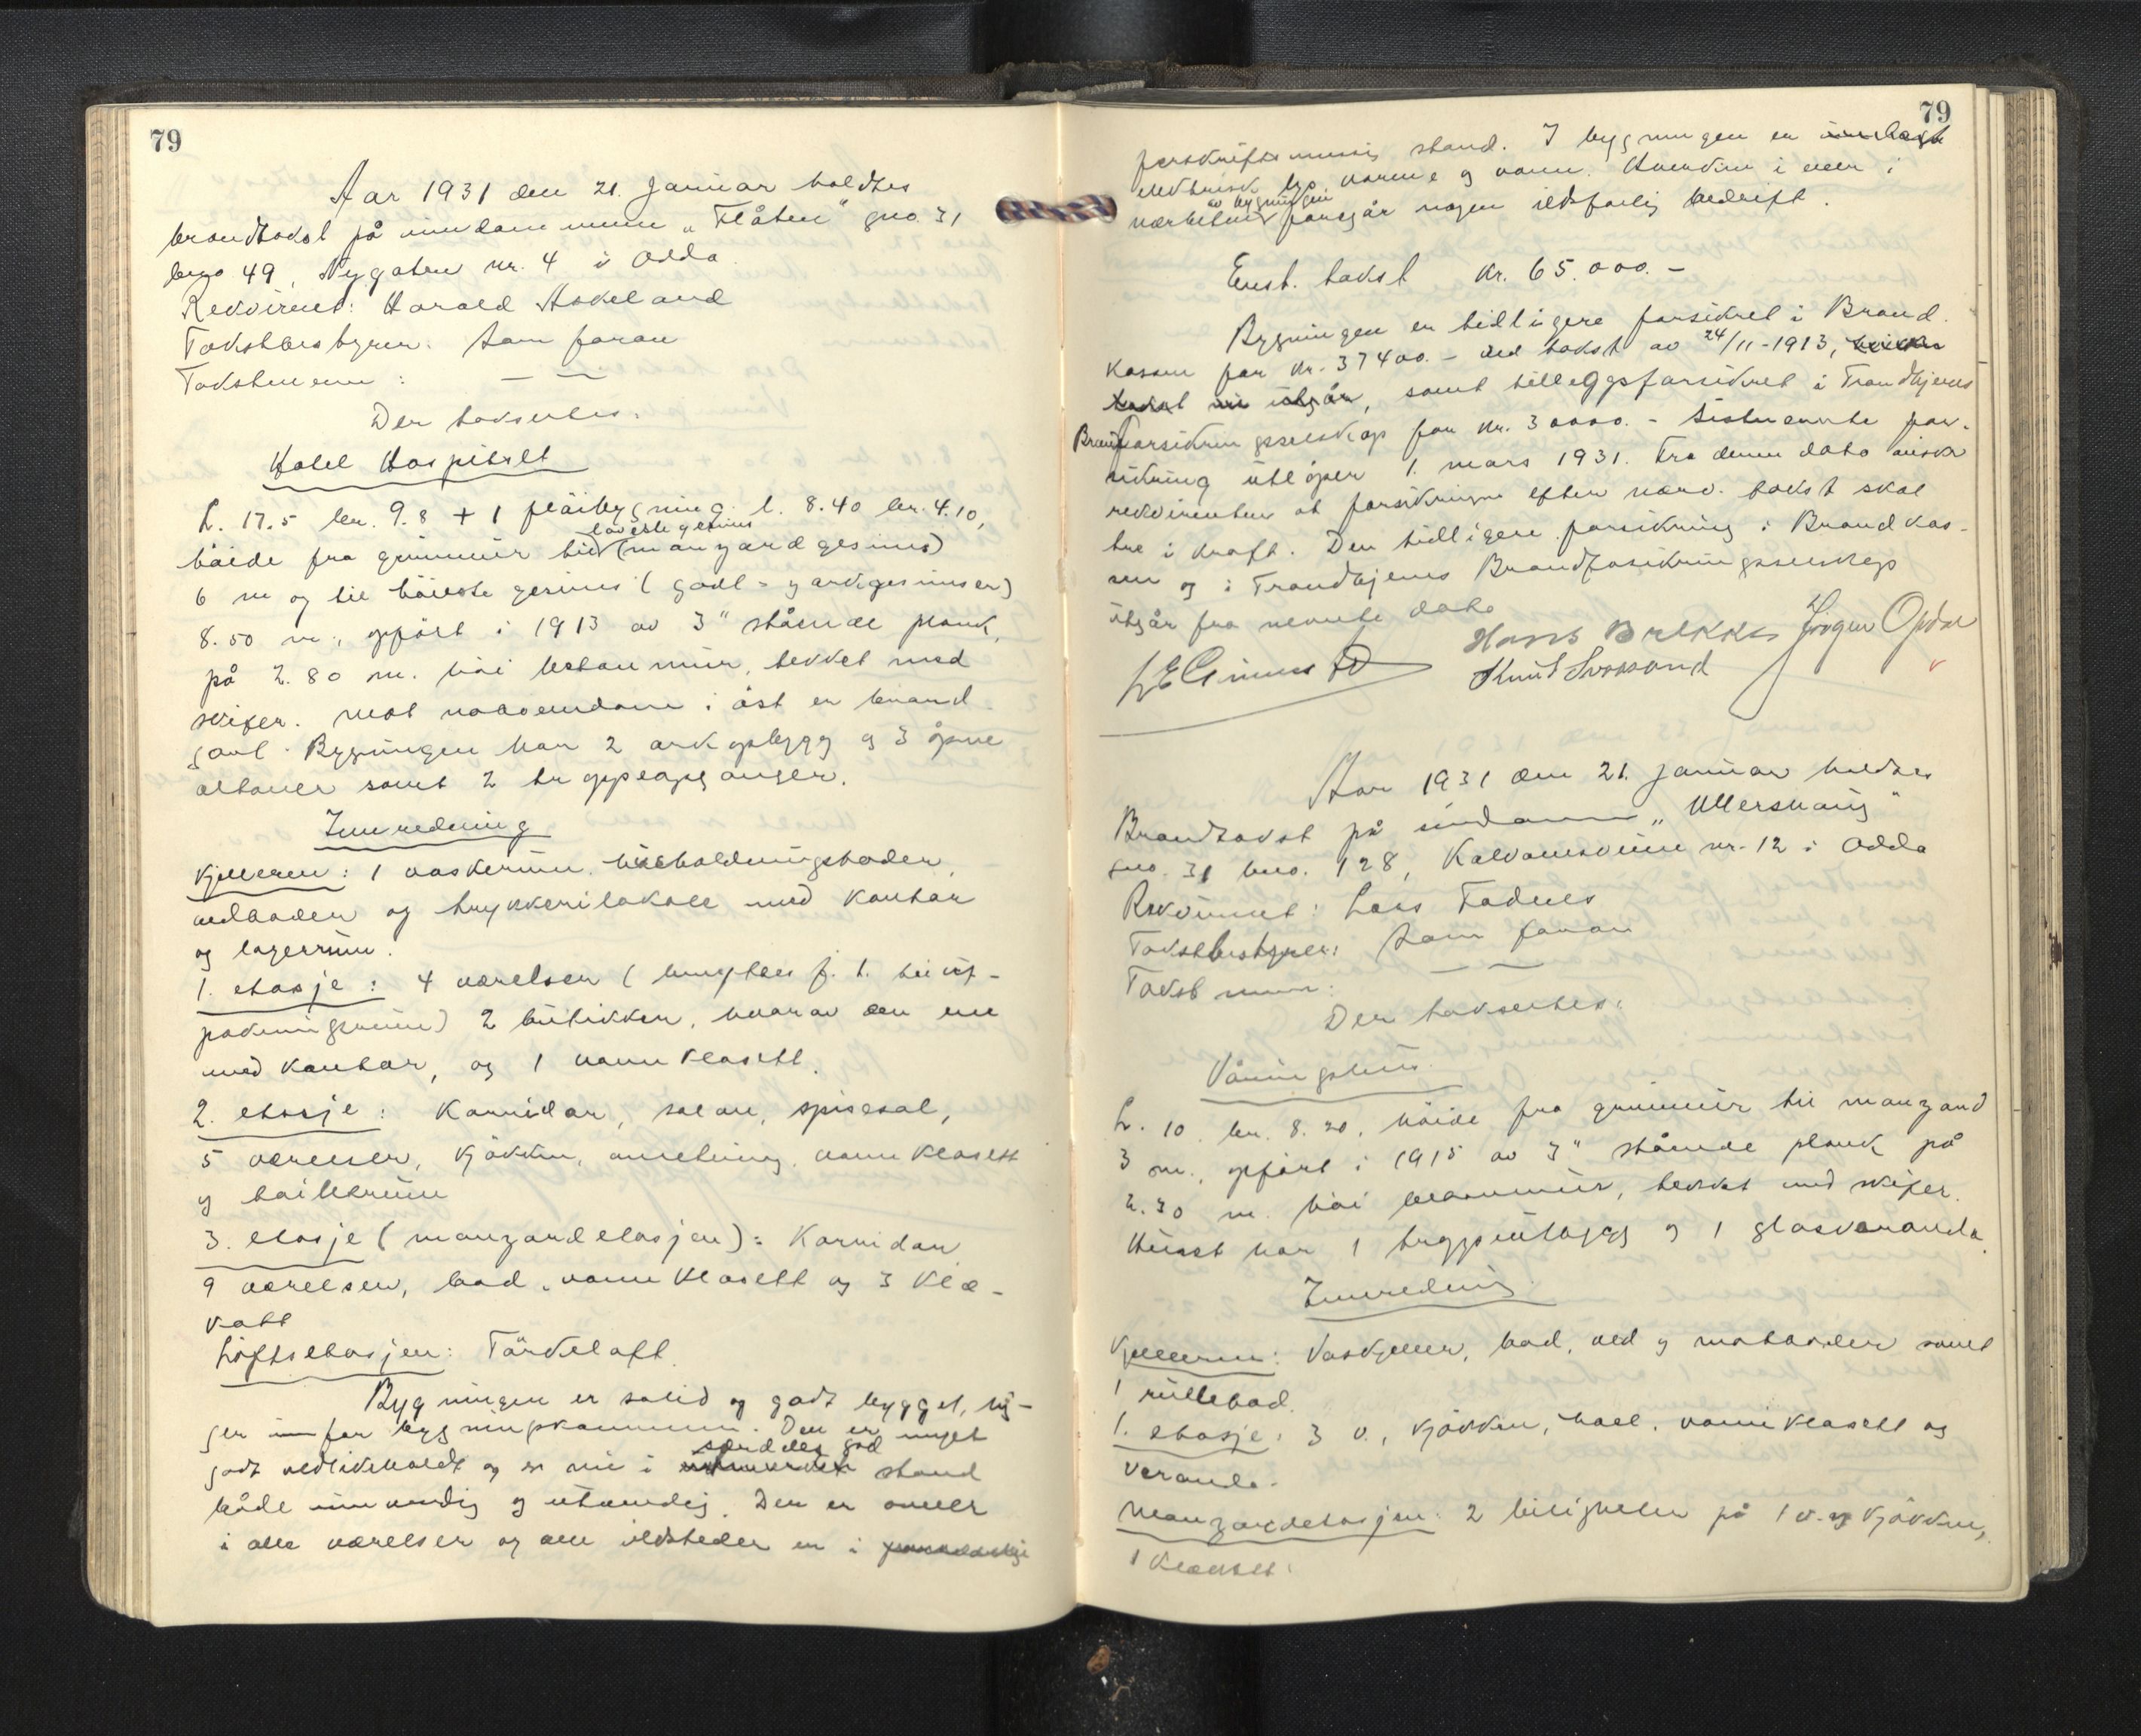 79
Aar 1931 den 21. januar holdtes
brandtakst på eiendommen „Flåten" gno. 31
brno 49, Nygaten nr. 4 i Odda.
Rekvirent: Harald Askeland
Takstbestyrer: Som foran
Takstmenn: — —
Der taksertes:
Hotel Hospitset
L. 17.5 br. 9.8 + 1 fløibygning l. 8.40 br. 4.10,
høide fra grunnmur til laveste gesims (manzardgesims)
6 m og til høieste gesims (gavl- y arkgesimser)
8.50 m., opført i 1913 av 3" stående plank,
på 2.80 m. høi betonmur, tekket med
skifer. Mot naboeiendom i øst er brand-
gavl. Bygningen har 2 arkopbygg og 3 åpne
altaner samt 2 trappeopganger.
Innredning
Kjelleren: 1 vaskerum, husholdningsboder,
vedboder og trykkerilokale med kontor
og lagerrum.
1. etasje: 4 værelser (benyttes f. t. til op-
pakningsrum) 2 butikker, hvorav den ene
med kontor, og 1 vannklosett.
2. etasje: Korridor, salon, spisesal,
5 værelser, kjøkken, anretning, vannklosett
og toilettrum
3. etasje (manzardetasjen): Korridor,
9 værelser, bad, vannklosett og 3 kle-
kott
Loftsetasjen: Tørkeloft.
Bygningen er solid og godt bygget, lig-
ger innfor bygningskommunen. Den er meget
godt vedlikeholdt og er nu i særdeles god stand
både innvendig og utvendig. Den er ovner
i alle værelser og alle ildsteder er i
79
forskriftsmessig stand. I bygningen er innlagt
elektrisk lys, varme og vann. Hverken i eller i
nærheten av bygningen foregår nogen ildsfarlig bedrift.
Enst. takst kr. 65.000.-
Bygningen er tidligere forsikret i Brand-
kassen for kr. 37400.- ved takst av 24/11-1913, hvilken
takst nu utgår, samt tilleggsforsikret i Trondhjems
Brandforsikringsselskap for kr. 30000.- Sistnevnte for-
sikring utløper 1. mars 1931. Fra denne dato ønsker
rekvirenten at forsikringen efter nærv. takst skal
tre i kraft. Den tidligere forsikring i Brandkas-
sen og i Trondhjems Brandforsikringsselskap
utgår fra nevnte dato
Hans Brekke Jørgen Opdal
Knut Svossand
Aar 1931 den 21. januar holdtes
Brandtakst på eiendommen „Ullershaug"
gno. 31 brno. 128, Kalvanesveien nr. 12 i Odda
Rekvirent: Lars Fadnes
Takstbestyrer: Som foran
Takstmenn: — —
Der takseртes:
Våningshus.
L. 10. br. 8.20, høide fra grunnmur til manzard
3 m., opført i 1915 av 3" stående plank på
2.30 m. høi betonmur, tekket med skifer.
Huset har 1 trappeutbygg og 1 glasveranda.
Innredning.
Kjelleren: Vaskjeller, bad, ved og matboder samt
1 rullebod.
1. etasje: 3 v., kjøkken, hall, vannklosett og
veranda.
Manzardetasjen: 2 leiligheter på 1 v. og kjøkken,
1 klosett.